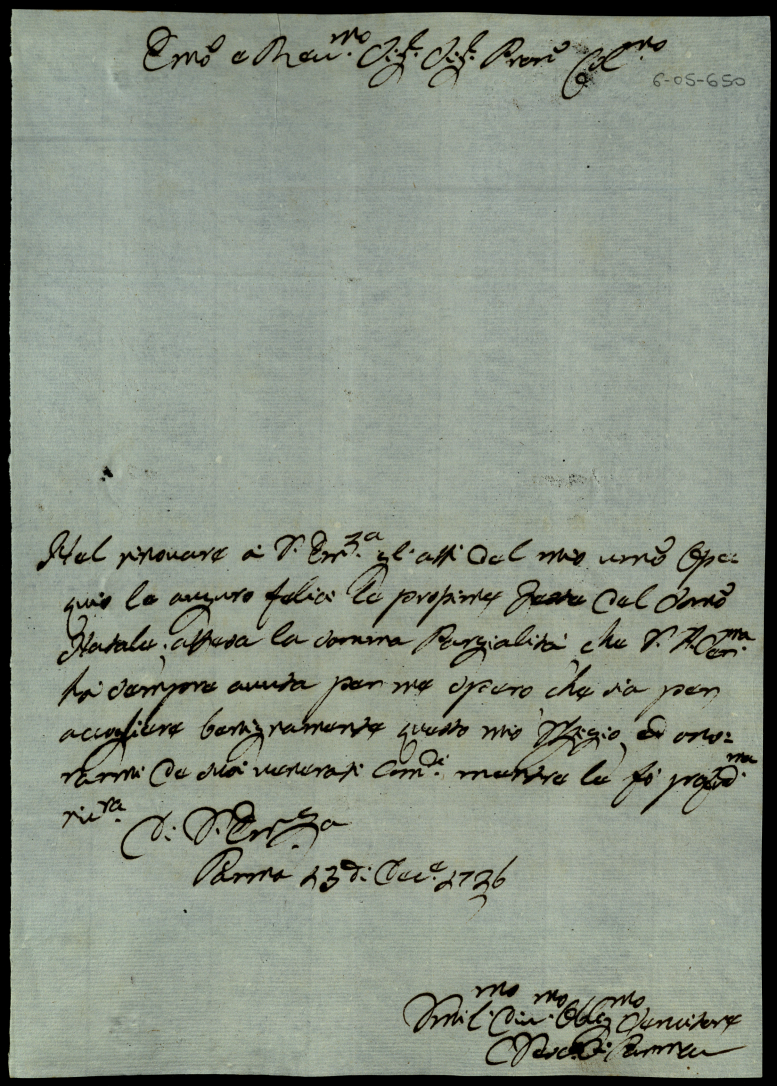 Emo e Reu.mo Sig.r Sig.r Pron Col.mo
6-05-650
Nel rinouare a V. Em.za gl'atti del mio umo Osse-
quio le auguro felici le prossime Feste del Smo
Natale; attesa la somma Parzialità, che V. Em.
hà sempre auuta per me spero, che sia per
accogliere benignamente questo mio Uffizio, ed ono-
rarmi de suoi uenerati Com.di, mentre le fò profond.ma
riu.za
Di V. Em.za
Parma 23 di Dec.e 1726
Umil.mo Diu.mo Oblig.mo Seruitore
Vesc.o di Parma